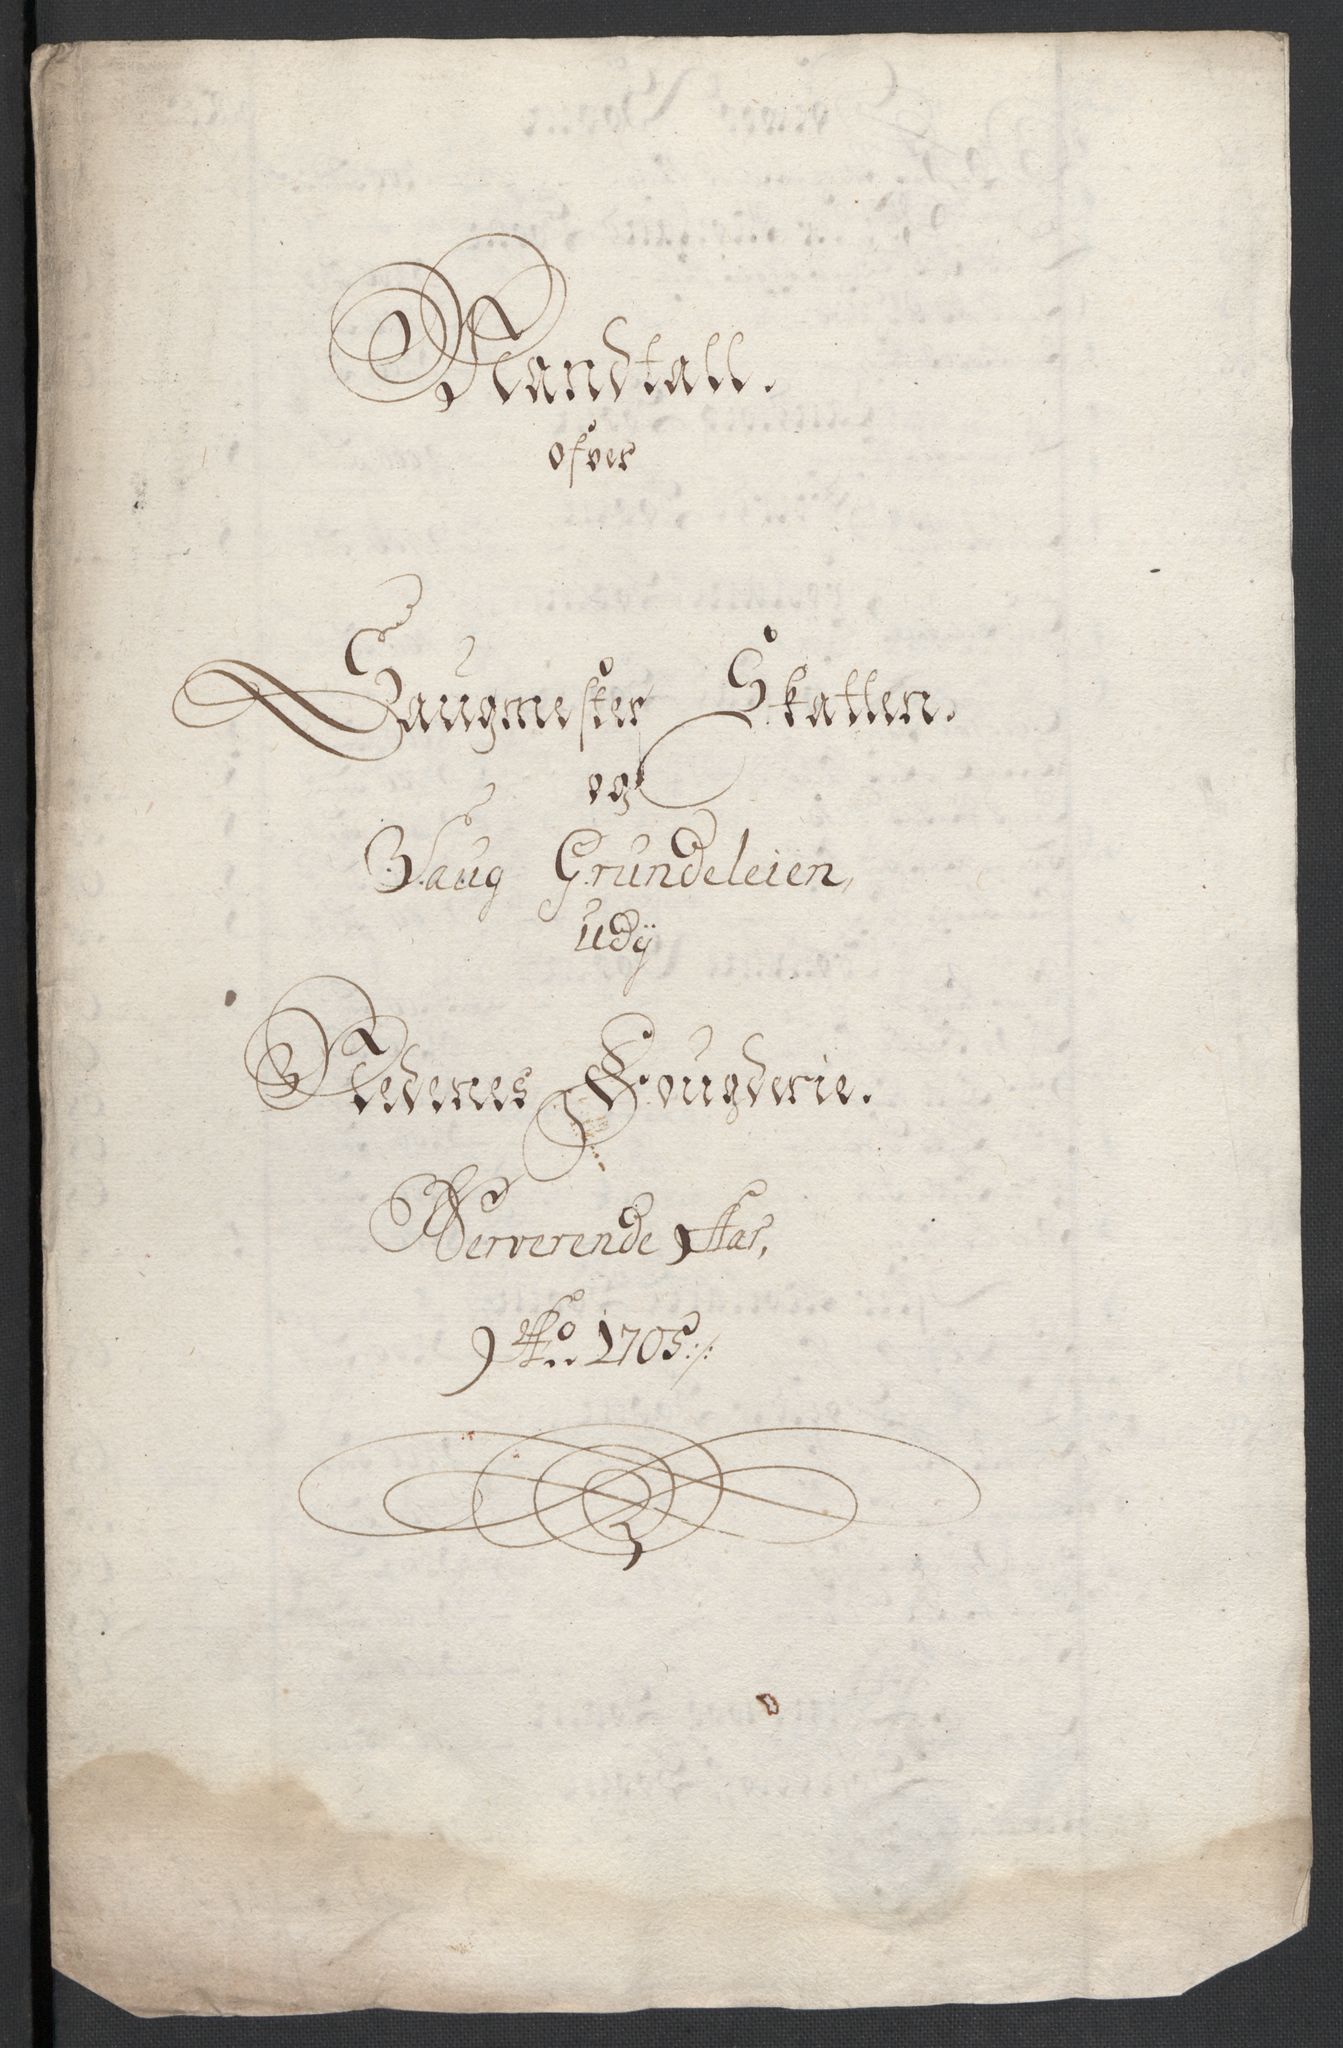 Mandtall.
ofver
Saugmester Skatten.
og
Saug Grundeleien,
udÿ
Nedenes Fougderie.
Nerverende Aar,
Ao 1705:/: